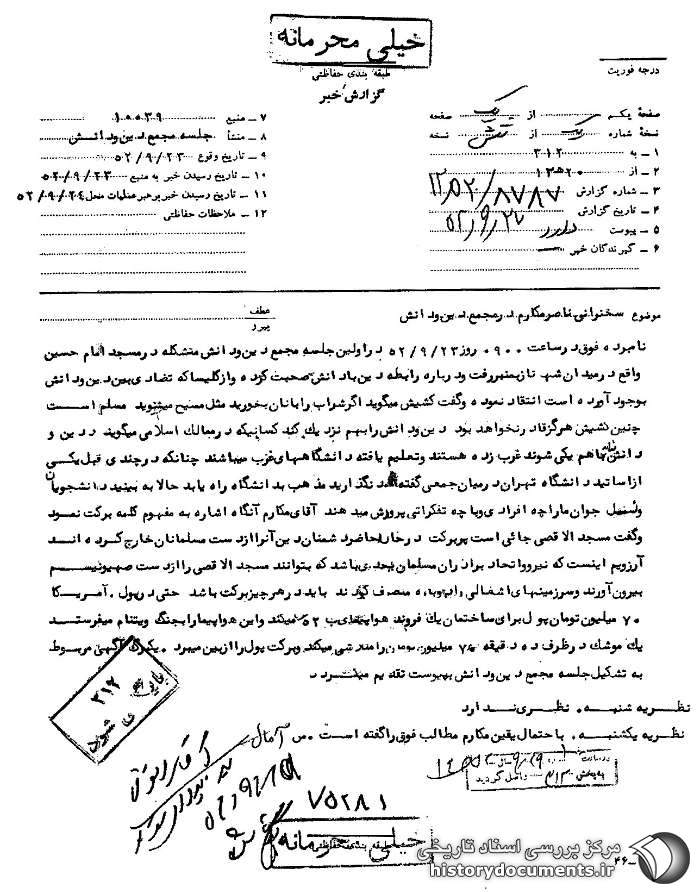 خیلی محرمانه
طبقه بندی حفاظتی
گزارش خبر
درجه فوریت
صفحهٔ یکم از یک صفحه
نسخهٔ شماره یک از شش نسخه
۱ ــ به ۳۱۲
۲ ــ از ۲۰ه۱۲
۳ ــ شماره گزارش ۱۲ه۲۰/۸۷۸۷
۴ ــ تاریخ گزارش ۵۲/۹/۲۷
۵ ــ پیوست دارد
۶ ــ گیرندگان خبر
۷ ــ منبع ۱۰۰۵۳۹
۸ ــ منشأ جلسه مجمع دین ودانش
۹ ــ تاریخ وقوع ۵۲/۹/۲۳
۱۰ ــ تاریخ رسیدن خبر به منبع ۵۲/۹/۲۳
۱۱ ــ تاریخ رسیدن خبر برهبر عملیات محل ۵۲/۹/۲۴
۱۲ ــ ملاحظات حفاظتی
موضوع سخنرانی ناصرمکارم درمجمع دین ودانش
عطف
پیرو
نامبرده فوق درساعت ۰۹۰۰ روز ۵۲/۹/۲۳ دراولین جلسه مجمع دین ودانش متشکله درمسجد امام حسین
واقع درمیدان شهناز بمنبررفت ودرباره رابطه دین بادانش صحبت کرده وازکلیساکه تضادی بین دین ودانش
بوجود آورده است انتقاد نموده وگفت کشیش میگوید اگرشراب رابانان بخورید مثل مسیح میشوید مسلم است
چنین کشیش هرگزقادرنخواهد بود دین ودانش رابهم نزدیک کند کسانیکه درممالک اسلامی میگویند دین و
دانش باهم یکی شوند غرب زده هستند وتعلیم یافته دانشگاههای غرب میباشند چنانکه درچندی قبل یکی
ازاساتید دانشگاه تهران درمیان جمعی گفته نگذارید مذهب بدانشگاه راه یابد حالا به ببینید دانشجویان
ونسل جوان مارا چه افرادی وبا چه تفکراتی پرورش میدهند آقای مکارم آنگاه اشاره به مفهوم کلمه برکت نمود
وگفت مسجد الاقصی جائی است پربرکت درحال حاضرد شمنان دین آنراازدست مسلمانان خارج کرده اند
آرزویم اینست که نیروواتحاد برادران مسلمان بحدی باشد که بتوانند مسجد الاقصی راازدست صهیونیسم
بیرون آورند وسرزمینهای اشغالی رادوباره متصرف گردند باید درهرچیزبرکت باشد حتی درپول . آمریکا
۷۰ میلیون تومان پول برای ساختمان یک فروند هواپیمای ب ۵۲ میکند واین هواپیمارابجنگ ویتنام میفرستد
یک موشک درظرف ده دقیقه ۷۰ میلیون تومان رامتلاشی میکند وبرکت پول راازبین میبرد . یکبرگ آگهی مربوط
به تشکیل جلسه مجمع دین ودانش به پیوست تقدیم میگردد
نظریه شنبه . نظری ندارد
نظریه یکشنبه . با حتمال یقین مکارم مطالب فوق راگفته است . س آمال
بایگانی شود
۳۱۲
به بخش ۳۱۲ داخل گردید
۷۵۲۸۱
خیلی محرمانه
طبقه بندی حفاظتی
۴۶ــ
مرکز بررسی اسناد تاریخی
historydocuments.ir